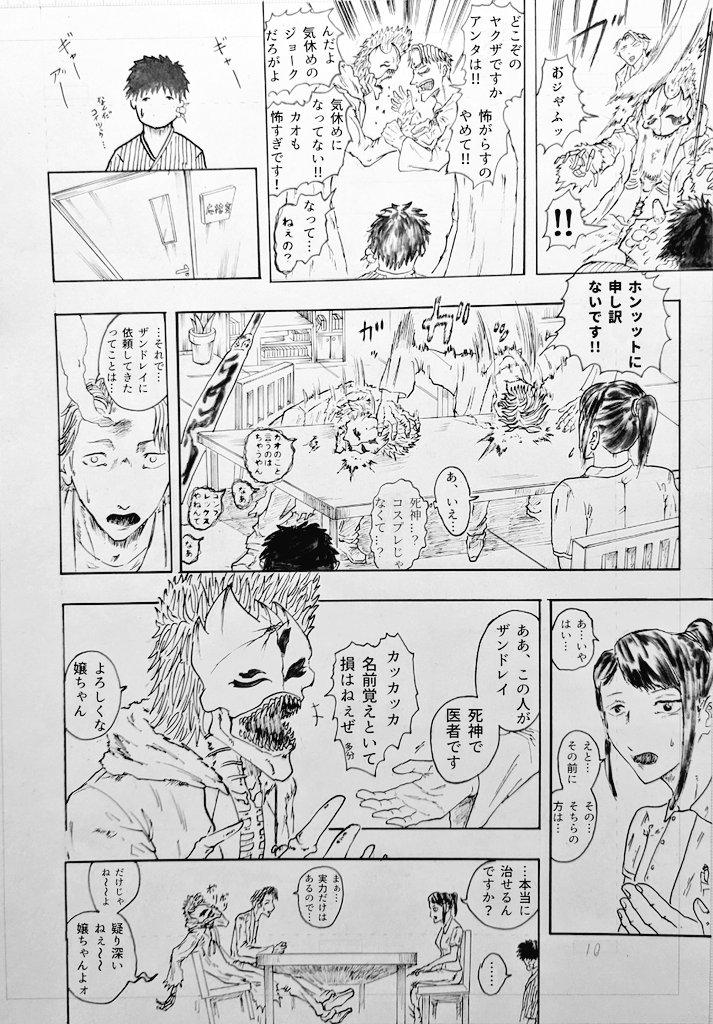 おジャふッ
!!
どこぞの
ヤクザですか
アンタは!!
怖がらすの
やめて!!
んだよ
気休めの
ジョーク
だろがよ
気休めに
なってない!!
カオも
怖すぎです!
なって…
ねぇの?
ギャー
ギャー
アッー
なんだ
コイツら…
応接室
ホンッットに
申し訳
ないです!!
ガ
ガッ
カオのこと
言うのは
ちゃうやん
なあ
コンプ
レックス
やねんて
なあ
あ、いえ…
死神…?
コスプレじゃ
なくて…?
…それで…
ザンドレイに
依頼してきた
ってことは…
あ…いや
はい…
えと…
その前に
その…
そちらの
方は…
ああ、この人が
ザンドレイ
死神で
医者です
カッカッカ
名前覚えといて
損はねぇぜ
多分
よろしくな
嬢ちゃん
…本当に
治せるん
ですか?
……
まぁ…
実力だけは
あるので…
だけじゃ
ね〜〜よ
疑り深い
ねぇ〜〜
嬢ちゃんよォ
10